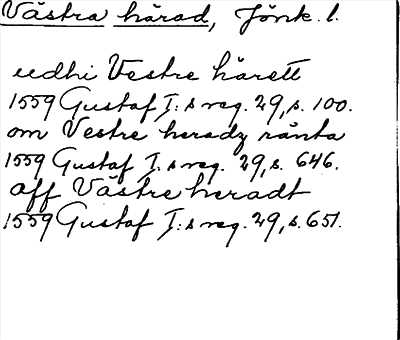 Västra härad, Jönk. l.
udhi Vestre härett
1559 Gustaf I:s reg. 29, s. 100.
om Vestre heradz ränta
1559 Gustaf I.s reg. 29, s. 646.
aff Västre heradt
1559 Gustaf I:s reg. 29, s. 651.